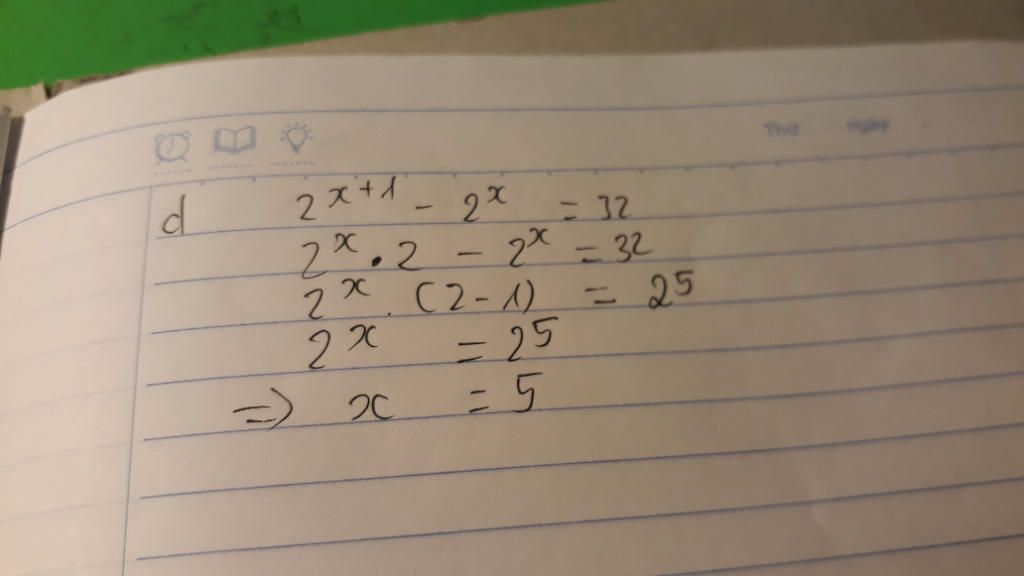 Thứ ngày
d 2^{x+1} - 2^x = 32
2^x . 2 - 2^x = 32
2^x . (2-1) = 2^5
2^x = 2^5
=> x = 5